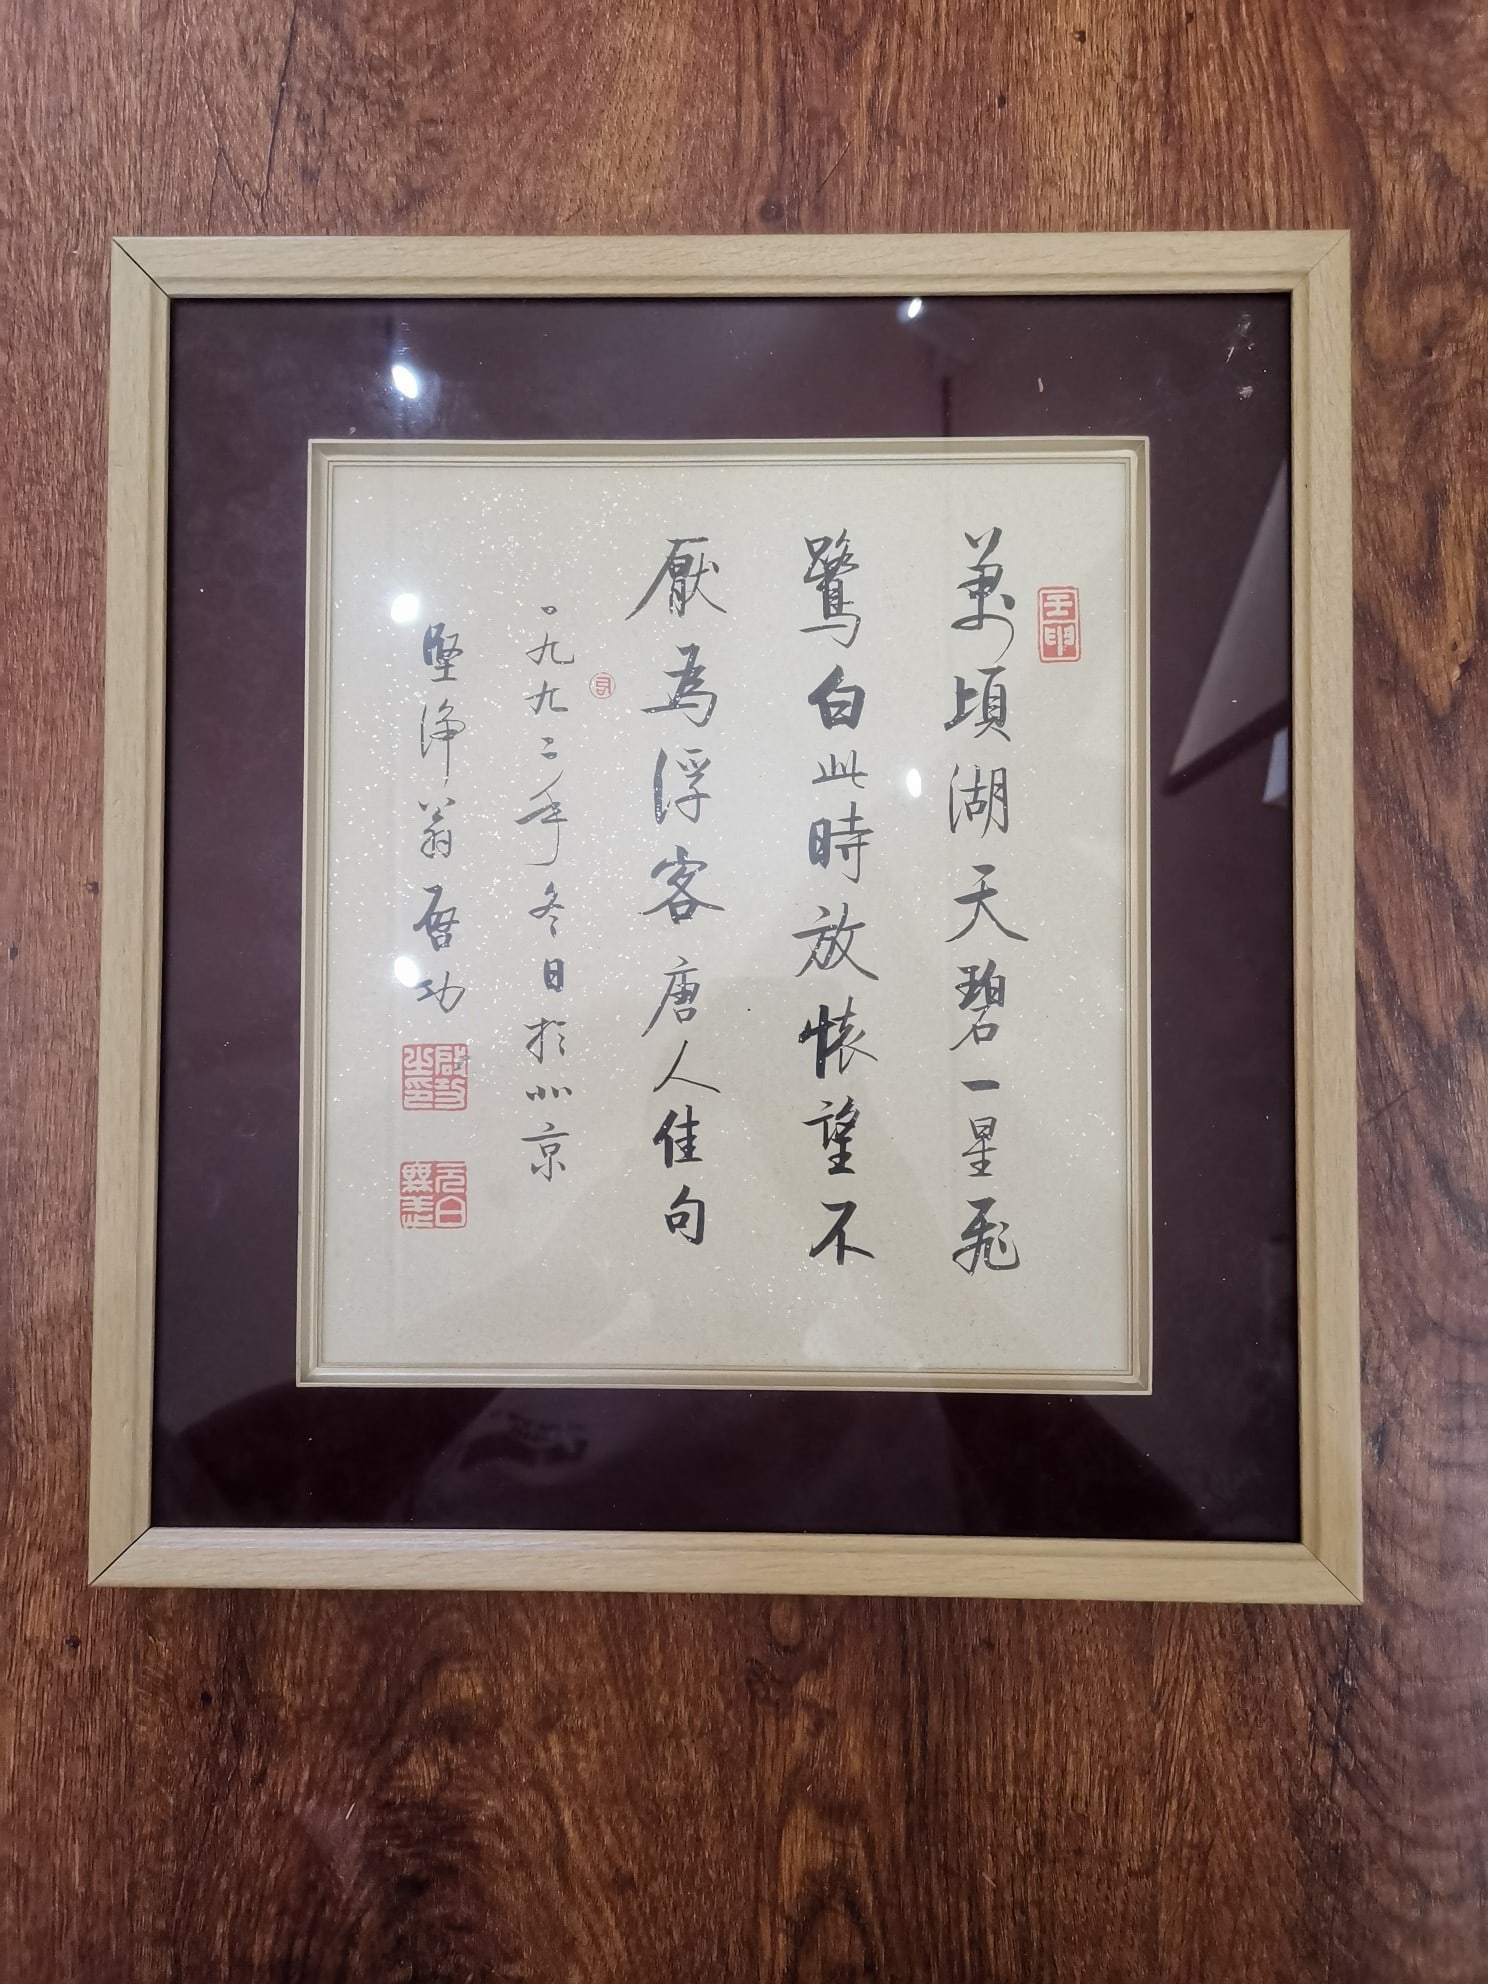 萬頃湖天碧一星飛
鷺白此時放懷望不
厭為浮客唐人佳句
一九九二年冬日於北京
堅淨翁啟功
壬申
啟功之印
元白無恙